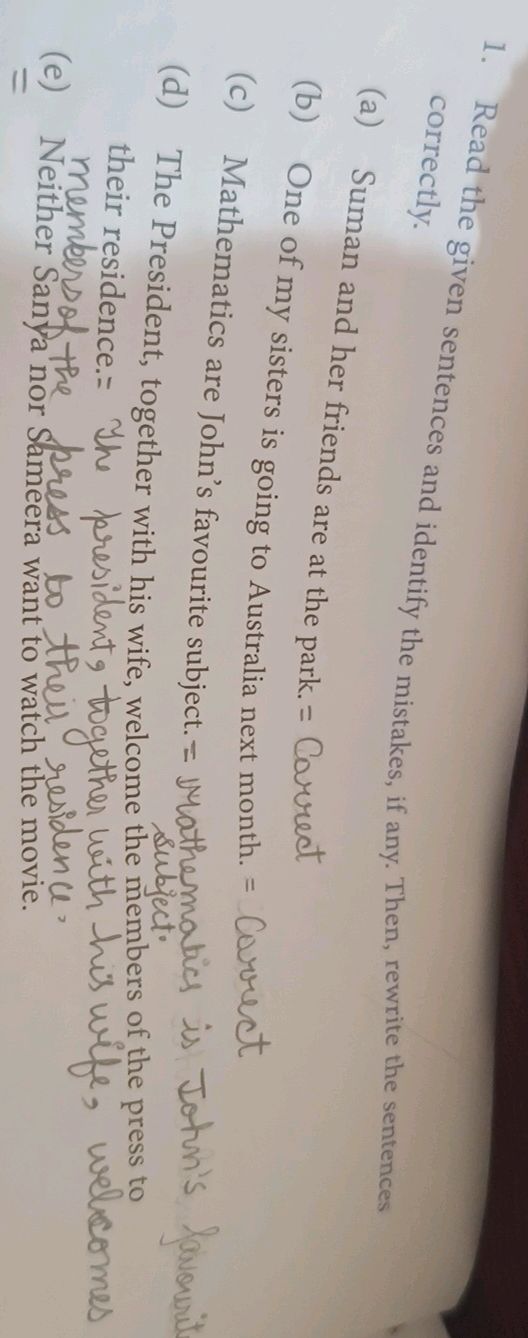 1. Read the given sentences and identify the mistakes, if any. Then, rewrite the sentences
correctly.
(a) Suman and her friends are at the park. = Correct
(b) One of my sisters is going to Australia next month. = Correct
(c) Mathematics are John's favourite subject. = Mathematics is John's favourite
subject.
(d) The President, together with his wife, welcome the members of the press to
their residence. = The president, together with his wife, welcomes
members of the press to their residence.
(e) Neither Sanya nor Sameera want to watch the movie.